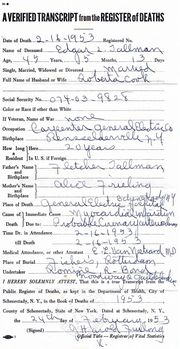 A VERIFIED TRANSCRIPT from the REGISTER of DEATHS
Date of Death 2-16-1953 Registered No.
Name of Deceased Edgar L. Tallman
Age, 45 Years 5 Months Days
Single, Married, Widowed or Divorced Married
Full Name of Husband or Wife Roberta Cook
Social Security No. 079-03-9828
Color or Race if other than White
If Veteran, Name of War none
Occupation Carpenter-General Electric Co
Birthplace N.Y.
How long Here 20 years
Resident In U.S. if Foreign
Father's Name and Birthplace Fletcher Tallman
Mother's Name and Birthplace Alice
Place of Death General Electric
Cause of Death Immediate Myocardial Infarction
Due to Probable Coronary
Time Dr. in Attendance 2-16-1953
till Death 2-16-1953
Medical Attendant, or other Attestant
Place of Burial Rotterdam
Undertaker
I HEREBY SOLEMNLY ATTEST, That this is a true Transcript from the
Public Register of Deaths, as kept in the Department of Health, City of
Schenectady, N. Y., in the Book of Deaths of 1953
County of Schenectady, State of New York. Dated at Schenectady, N. Y.,
the day of February, 1953
(Signed)
Official Title—Registrar of Vital Statistics